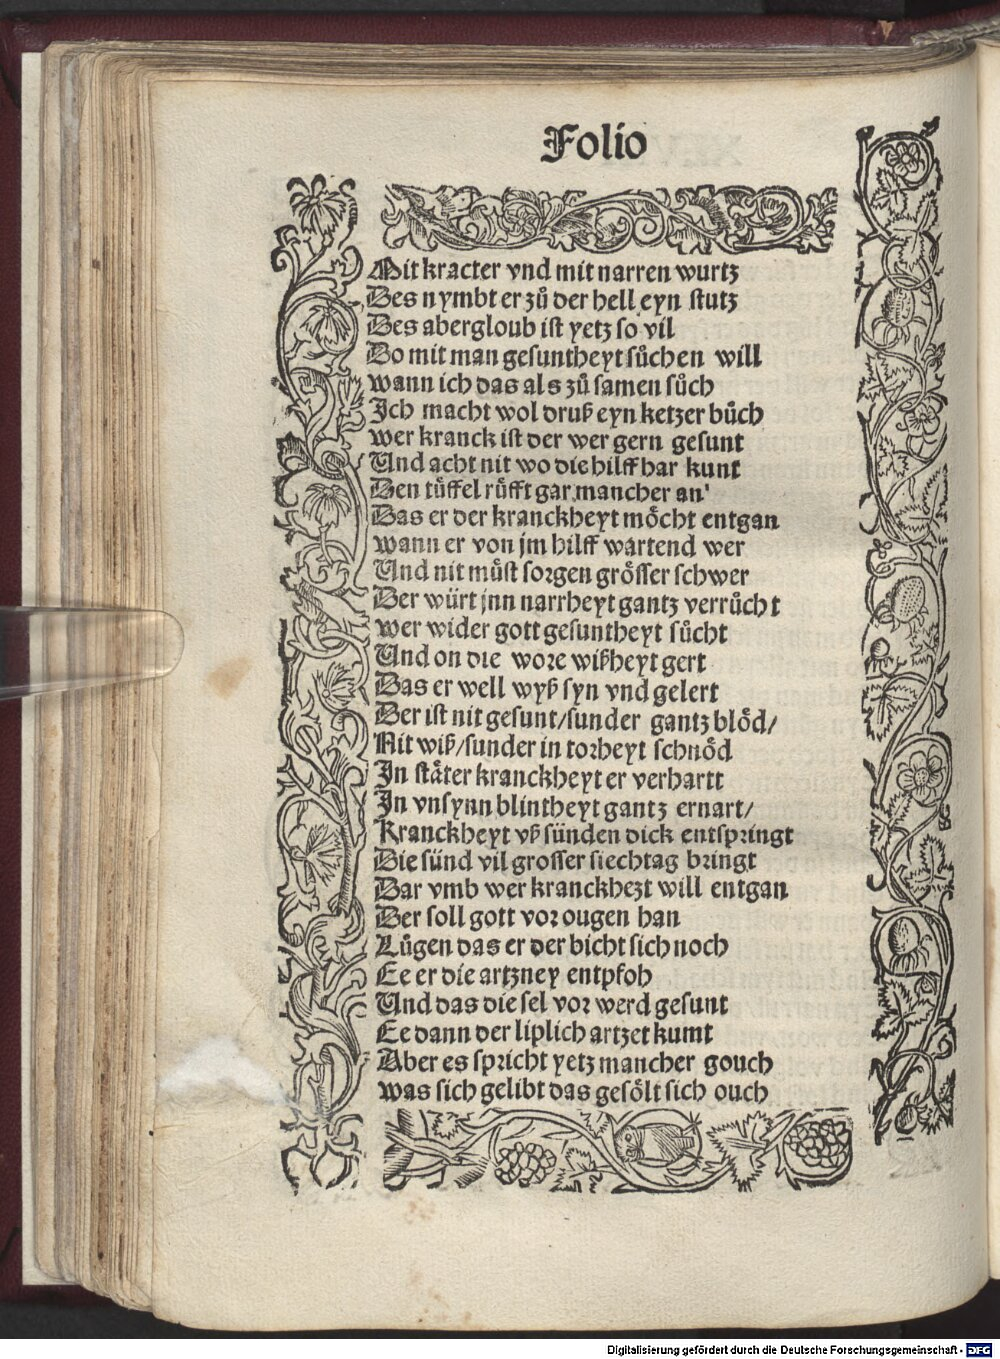 Folio
Mit kracter vnd mit narren wurtz
Des nymbt er zuͦ der hell eyn stutz
Des abergloub ist yetz so vil
Do mit man gesuntheyt suͦchen will
wann ich das als zuͦ samen suͦch
Ich macht wol druß eyn ketzer buͦch
wer kranck ist der wer gern gesunt
Und acht nit wo die hilff har kunt
Den tüffel rüfft gar mancher an'
Das er der kranckheyt möcht entgan
wann er von jm hilff wartend wer
Und nit müst sorgen grösser schwer
Der würt jnn narrheyt gantz verruͦcht
wer wider gott gesuntheyt suͦcht
Und on die wore wißheyt gert
Das er well wyß syn vnd gelert
Der ist nit gesunt/sunder gantz blöd/
Nit wiß/sunder in torheyt schnöd
In stäter kranckheyt er verhartt
In vnsynn blintheyt gantz ernart/
Kranckheyt vß sünden dick entspringt
Die sünd vil grosser siechtag bringt
Dar vmb wer kranckhezt will entgan
Der soll gott vor ougen han
Luͦgen das er der bicht sich noch
Ee er die artzney entpfoh
Und das die sel vor werd gesunt
Ee dann der liplich artzet kumt
Aber es spricht yetz mancher gouch
was sich gelibt das gesölt sich ouch
Digitalisierung gefördert durch die Deutsche Forschungsgemeinschaft - DFG